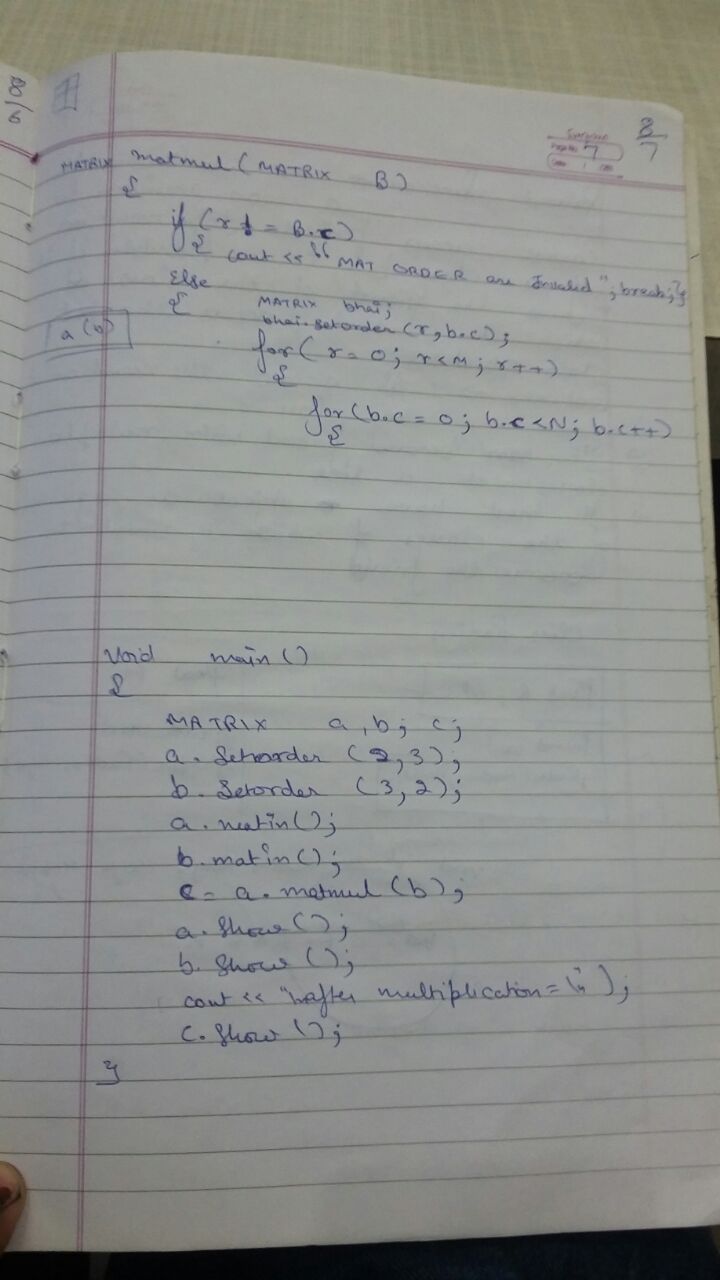 8/6
8/7
Page No. 7
MATRIX matmul (MATRIX B)
{
if (r != B.c)
{ cout << "MAT ORDER are Invalid"; break;}
Else
{ MATRIX bhai;
bhai.setorder (r, b.c);
a (b)
for( r = 0; r<M; r++)
{
for(b.c = 0; b.c <N; b.c++)
{
Void main ()
{
MATRIX a, b; c;
a. Setorder (2,3);
b. Setorder (3,2);
a. matin();
b. matin();
c = a. matmul (b);
a. Show ();
b. Show ();
cout << "\nafter multiplication = \n");
C. Show ();
}